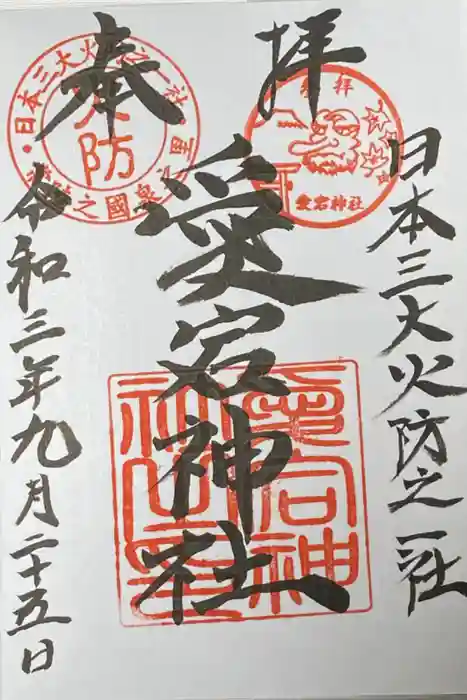 奉拝
日本三大火防之一社
愛宕神社
令和三年九月二十五日
火防
日本三大火防之一社
参拝
愛宕神社
愛宕神社